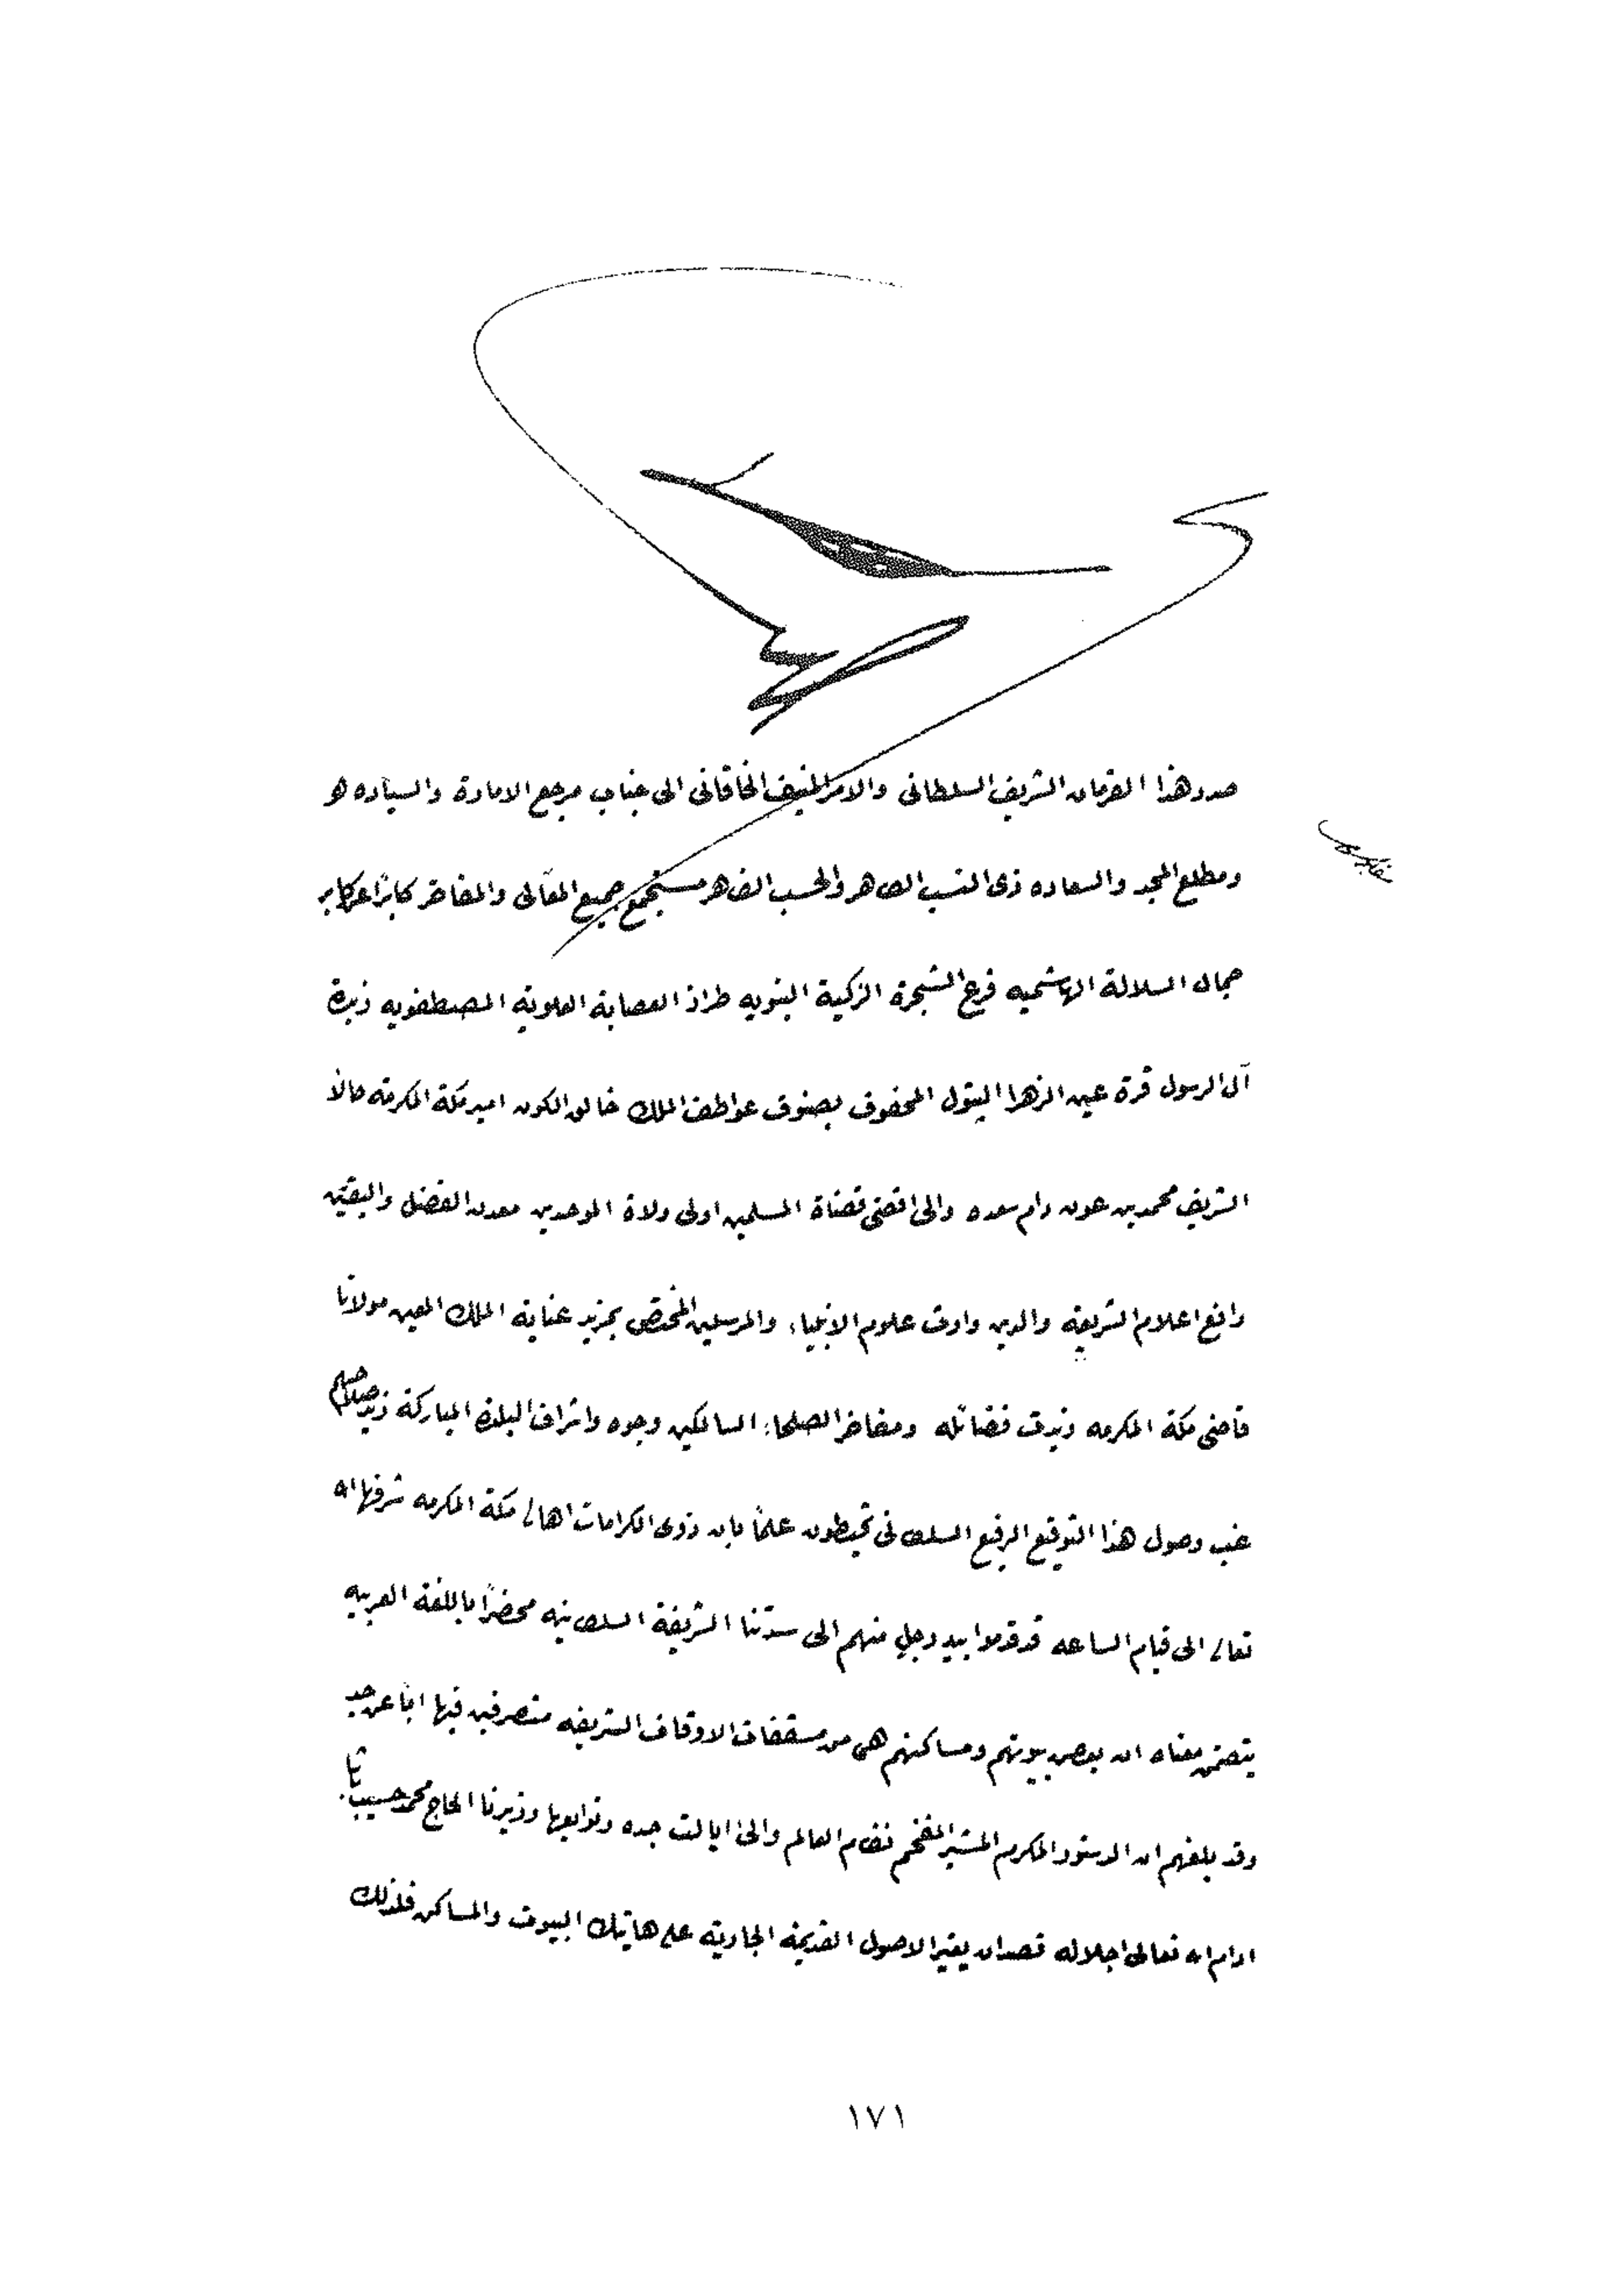 صدر هذا الفرمان الشريف السلطانى والامر المنيف الخاقانى الى جناب مرجع الامارة والسياده هو
ومطلع المجد والسعاده ذى النسب الطاهر والحسب الظاهر مستجمع جميع المعالى والمفاخر كابرًا عن كابر
جمال السلالة الهاشميه فرع الشجرة الزكية النبويه طراز العصابة العلوية المصطفويه زبدة
آل الرسول قرة عين الزهرا البتول المحفوف بصنوف عواطف الملك خالق الكون امير مكة المكرمة حالا
الشريف محمد بن عون دام سعده والى اقضى قضاة المسلمين اولى ولاة الموحدين معدن الفضل واليقين
رافع اعلام الشريعه والدين وارث علوم الانبياء والمرسلين المختص بمزيد عناية الملك المعين مولانا
قاضى مكة المكرمه زيدت فضائله ومفاخر الصلحاء السالكين وجوه واشراف البلدة المباركة زيد صلاحهم
غب وصول هذا التوقيع الرفيع السلطانى تحيطون علمًا بان ذوى الكرامات اهالى مكة المكرمه شرفها الله
تعالى الى قيام الساعه قد قدموا بيد رجل منهم الى سدتنا الشريفة السلطانيه محضرًا باللغة العربيه
يتضمن معناه ان بعض بيوتهم ومساكنهم هى من مسقفات الاوقاف الشريفه متصرفين فيها ابًا عن جد
وقد بلغهم ان الدستور المكرم المشير المفخم نظام العالم والى ايالت جده وتوابعها وزيرنا الحاج محمد حسيب باشا
ادام الله تعالى اجلاله قصد ان يغير الاصول القديمة الجارية على هاتيك البيوت والمساكن فلذلك
١٧١